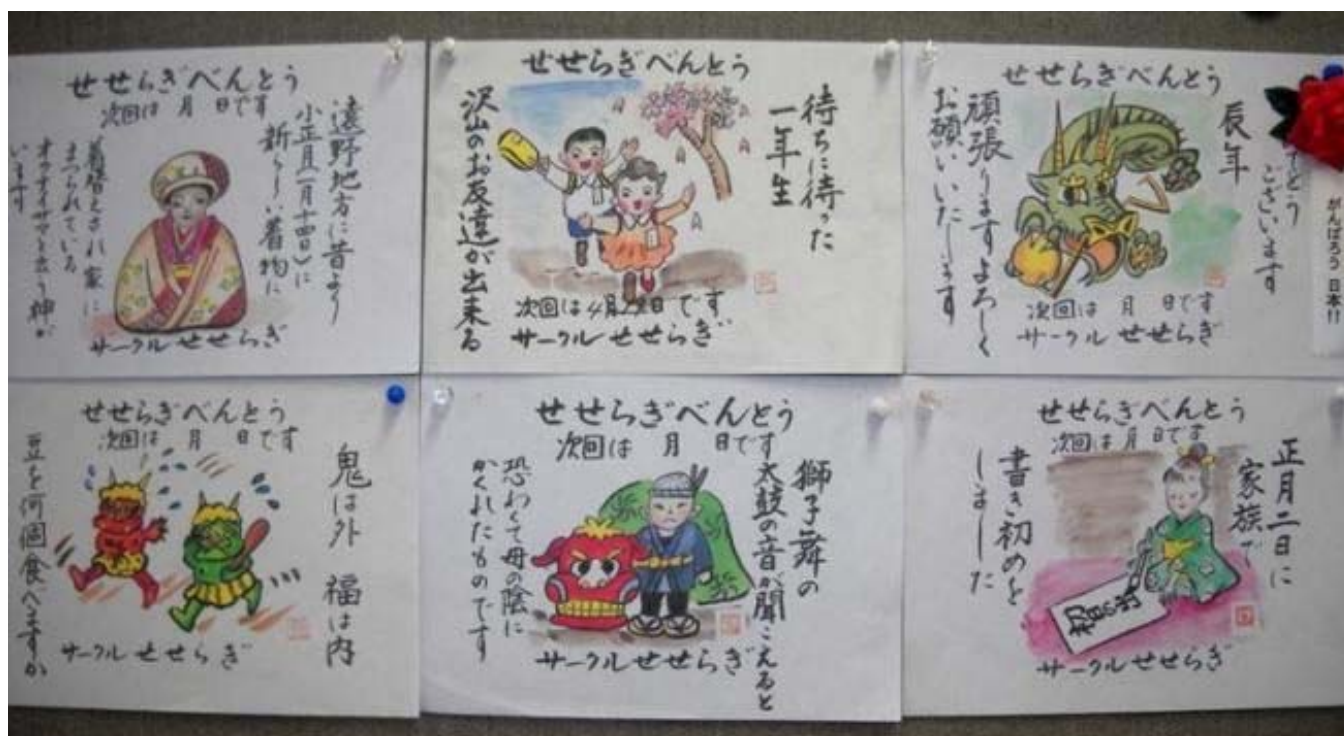 せせらぎべんとう
次回は 月 日です
遠野地方に昔より
小正月(一月十四日)に
新らしい着物に
着替とされ家に
まつられている
オクナイサマと云う神が
います
サークルせせらぎ
せせらぎべんとう
待ちに待った
一年生
沢山のお友達が出来る
次回は4月 日です
サークルせせらぎ
せせらぎべんとう
でとう
ございます
辰年
頑張りますよろしく
お願いいたします
次回は 月 日です
サークルせせらぎ
がんばろう 日本!!
せせらぎべんとう
次回は 月 日です
鬼は外 福は内
豆を何個食べますか
サークルせせらぎ
せせらぎべんとう
次回は 月 日です
獅子舞の
太鼓の音が聞こえると
恐わくて母の陰に
かくれたものです
サークルせせらぎ
せせらぎべんとう
次回は 月 日です
正月二日に
家族で
書き初めを
しました
サークルせせらぎ